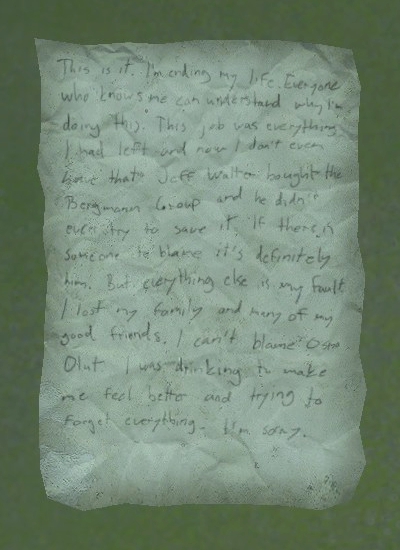 This is it. I'm ending my life. Everyone
who knows me can understand why I'm
doing this. This job was everything
I had left and now I don't even
have that. Jeff Walter bought the
Bergmann Group and he didn't
even try to save it. If there is
someone to blame it's definitely
him. But everything else is my fault.
I lost my family and many of my
good friends. I can't blame
Olut I was drinking to make
me feel better and trying to
forget everything. I'm sorry.